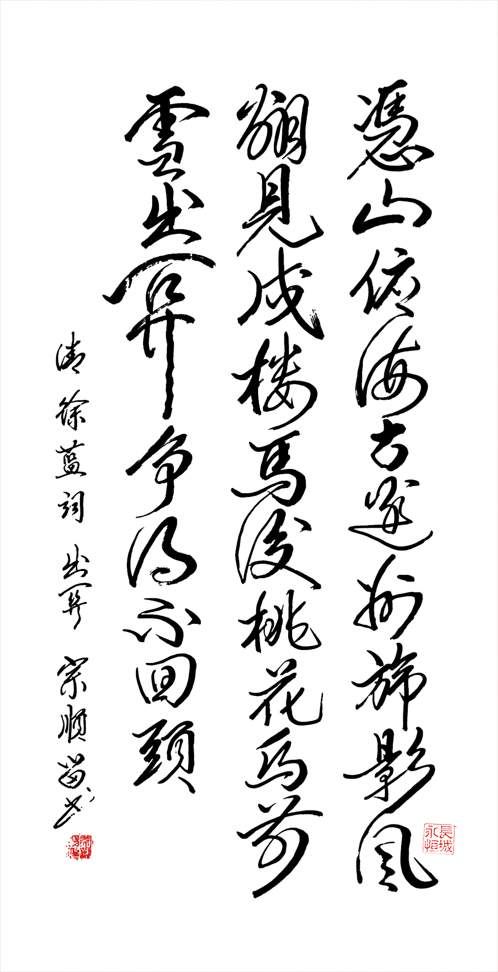 憑山俯海古邊州旆影風
翻見戍楼馬後桃花馬前
雪出關争得不回頭
清徐蓝詞 出關 宗順书
長城
永恒